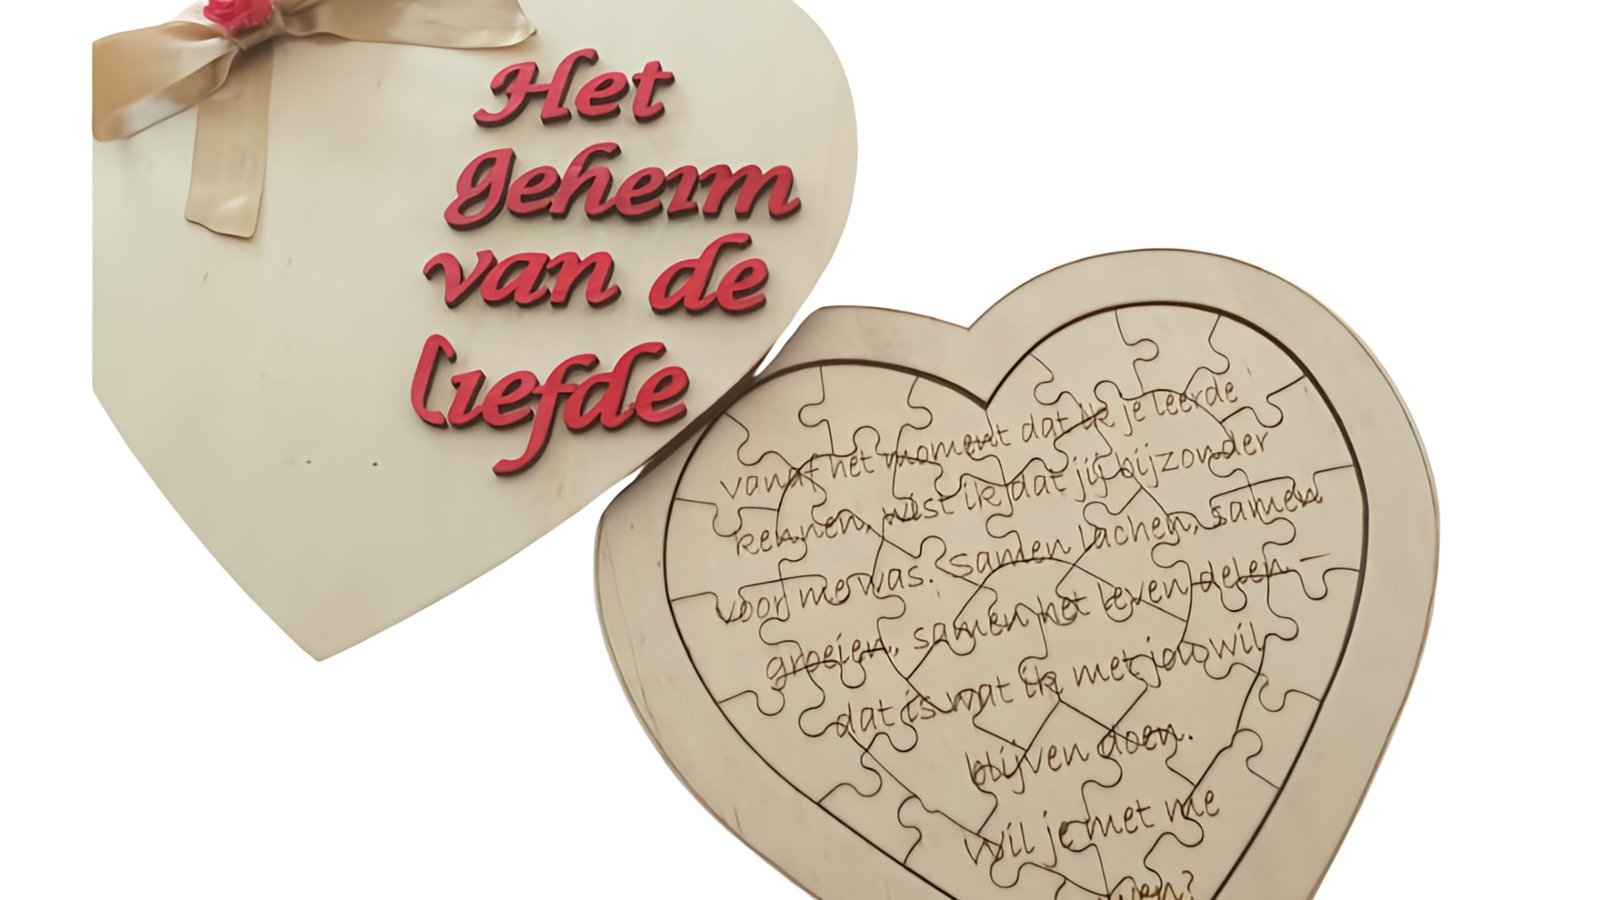 Het
geheim
van de
liefde
vanaf het moment dat ik je leerde
kennen, wist ik dat jij bijzonder
voor me was. samen lachen, samen
groeien, samen het leven delen –
dat is wat ik met jou wil
blijven doen.
Wil je met me